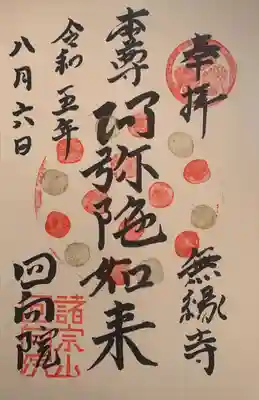 奉拝
無縁寺
本尊
阿弥陀如来
令和五年
八月六日
回向院
諸宗山